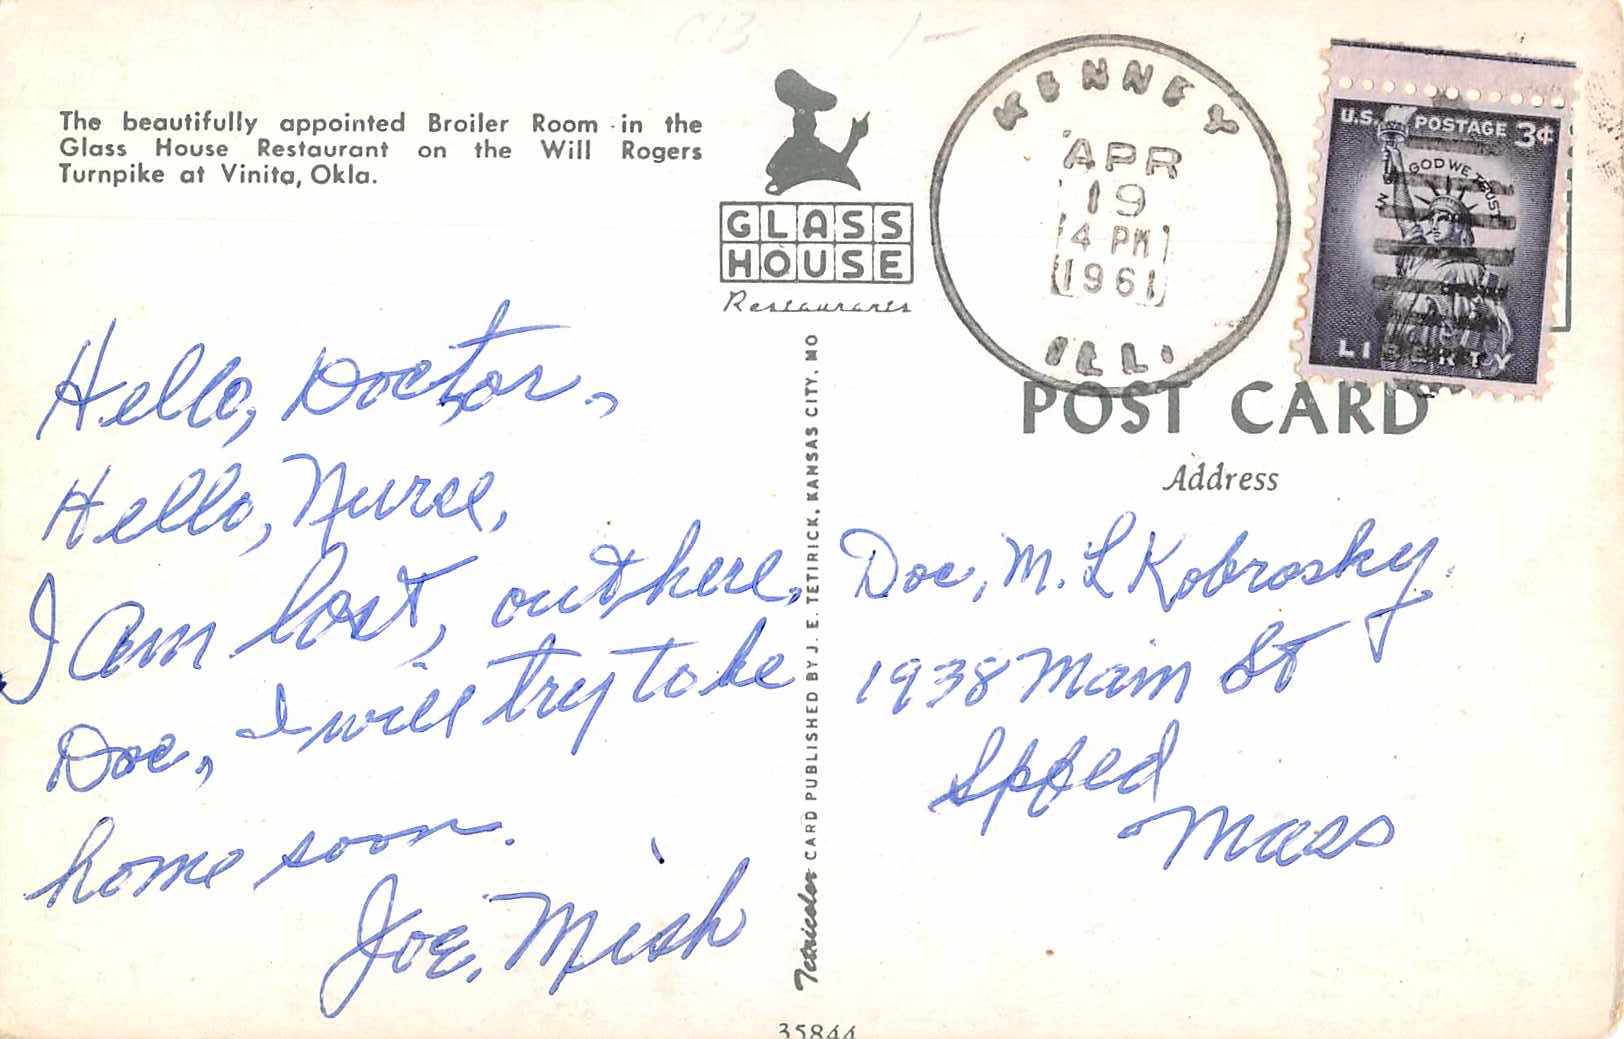 The beautifully appointed Broiler Room in the
Glass House Restaurant on the Will Rogers
Turnpike at Vinita, Okla.
GLASS
HOUSE
Restaurants
KENNEY
APR
19
4 PM
1961
ILL.
U.S. POSTAGE 3¢
IN GOD WE TRUST
LIBERTY
POST CARD
Address
Hello, Doctor.,
Hello, Nurse,
I am lost, out here.
Doc, I will try to be
home soon.
Joe, Mish
Tetricolor CARD PUBLISHED BY J. E. TETIRICK, KANSAS CITY, MO
Doc, M. L Kobrosky.
1938 Main St
Spfed
Mass
35844